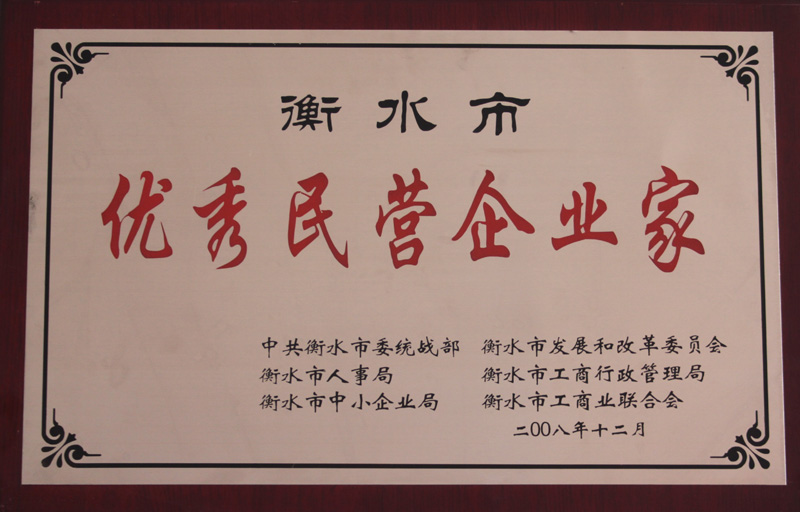 衡水市
优秀民营企业家
中共衡水市委统战部 衡水市发展和改革委员会
衡水市人事局 衡水市工商行政管理局
衡水市中小企业局 衡水市工商业联合会
二00八年十二月